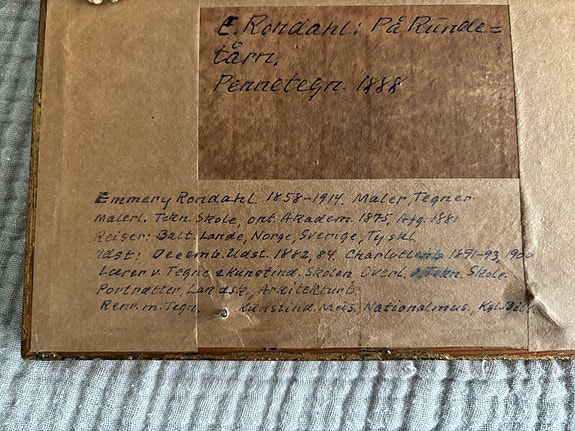 E. Rondahl: På Runde=
tårn.
Pennetegn. 1888
Emmery Rondahl 1858-1914. Maler, Tegner
Malerl. Tekn. Skole, opt. Akadem. 1875, Afg. 1881
Reiser: Balt. Lande, Norge, Sverige, Tyskl.
Udst: Decemb. Udst. 1882, 84. Charlottenb 1891-93, 1900
Lærer v. Tegne & Kunstind. Skolen Overl. Tekn. Skole.
Portrætter, Landsk, Arkitekturb.
Repr. m. Tegn. Kunstind. Mus, Nationalmus., Kgl. Bibl